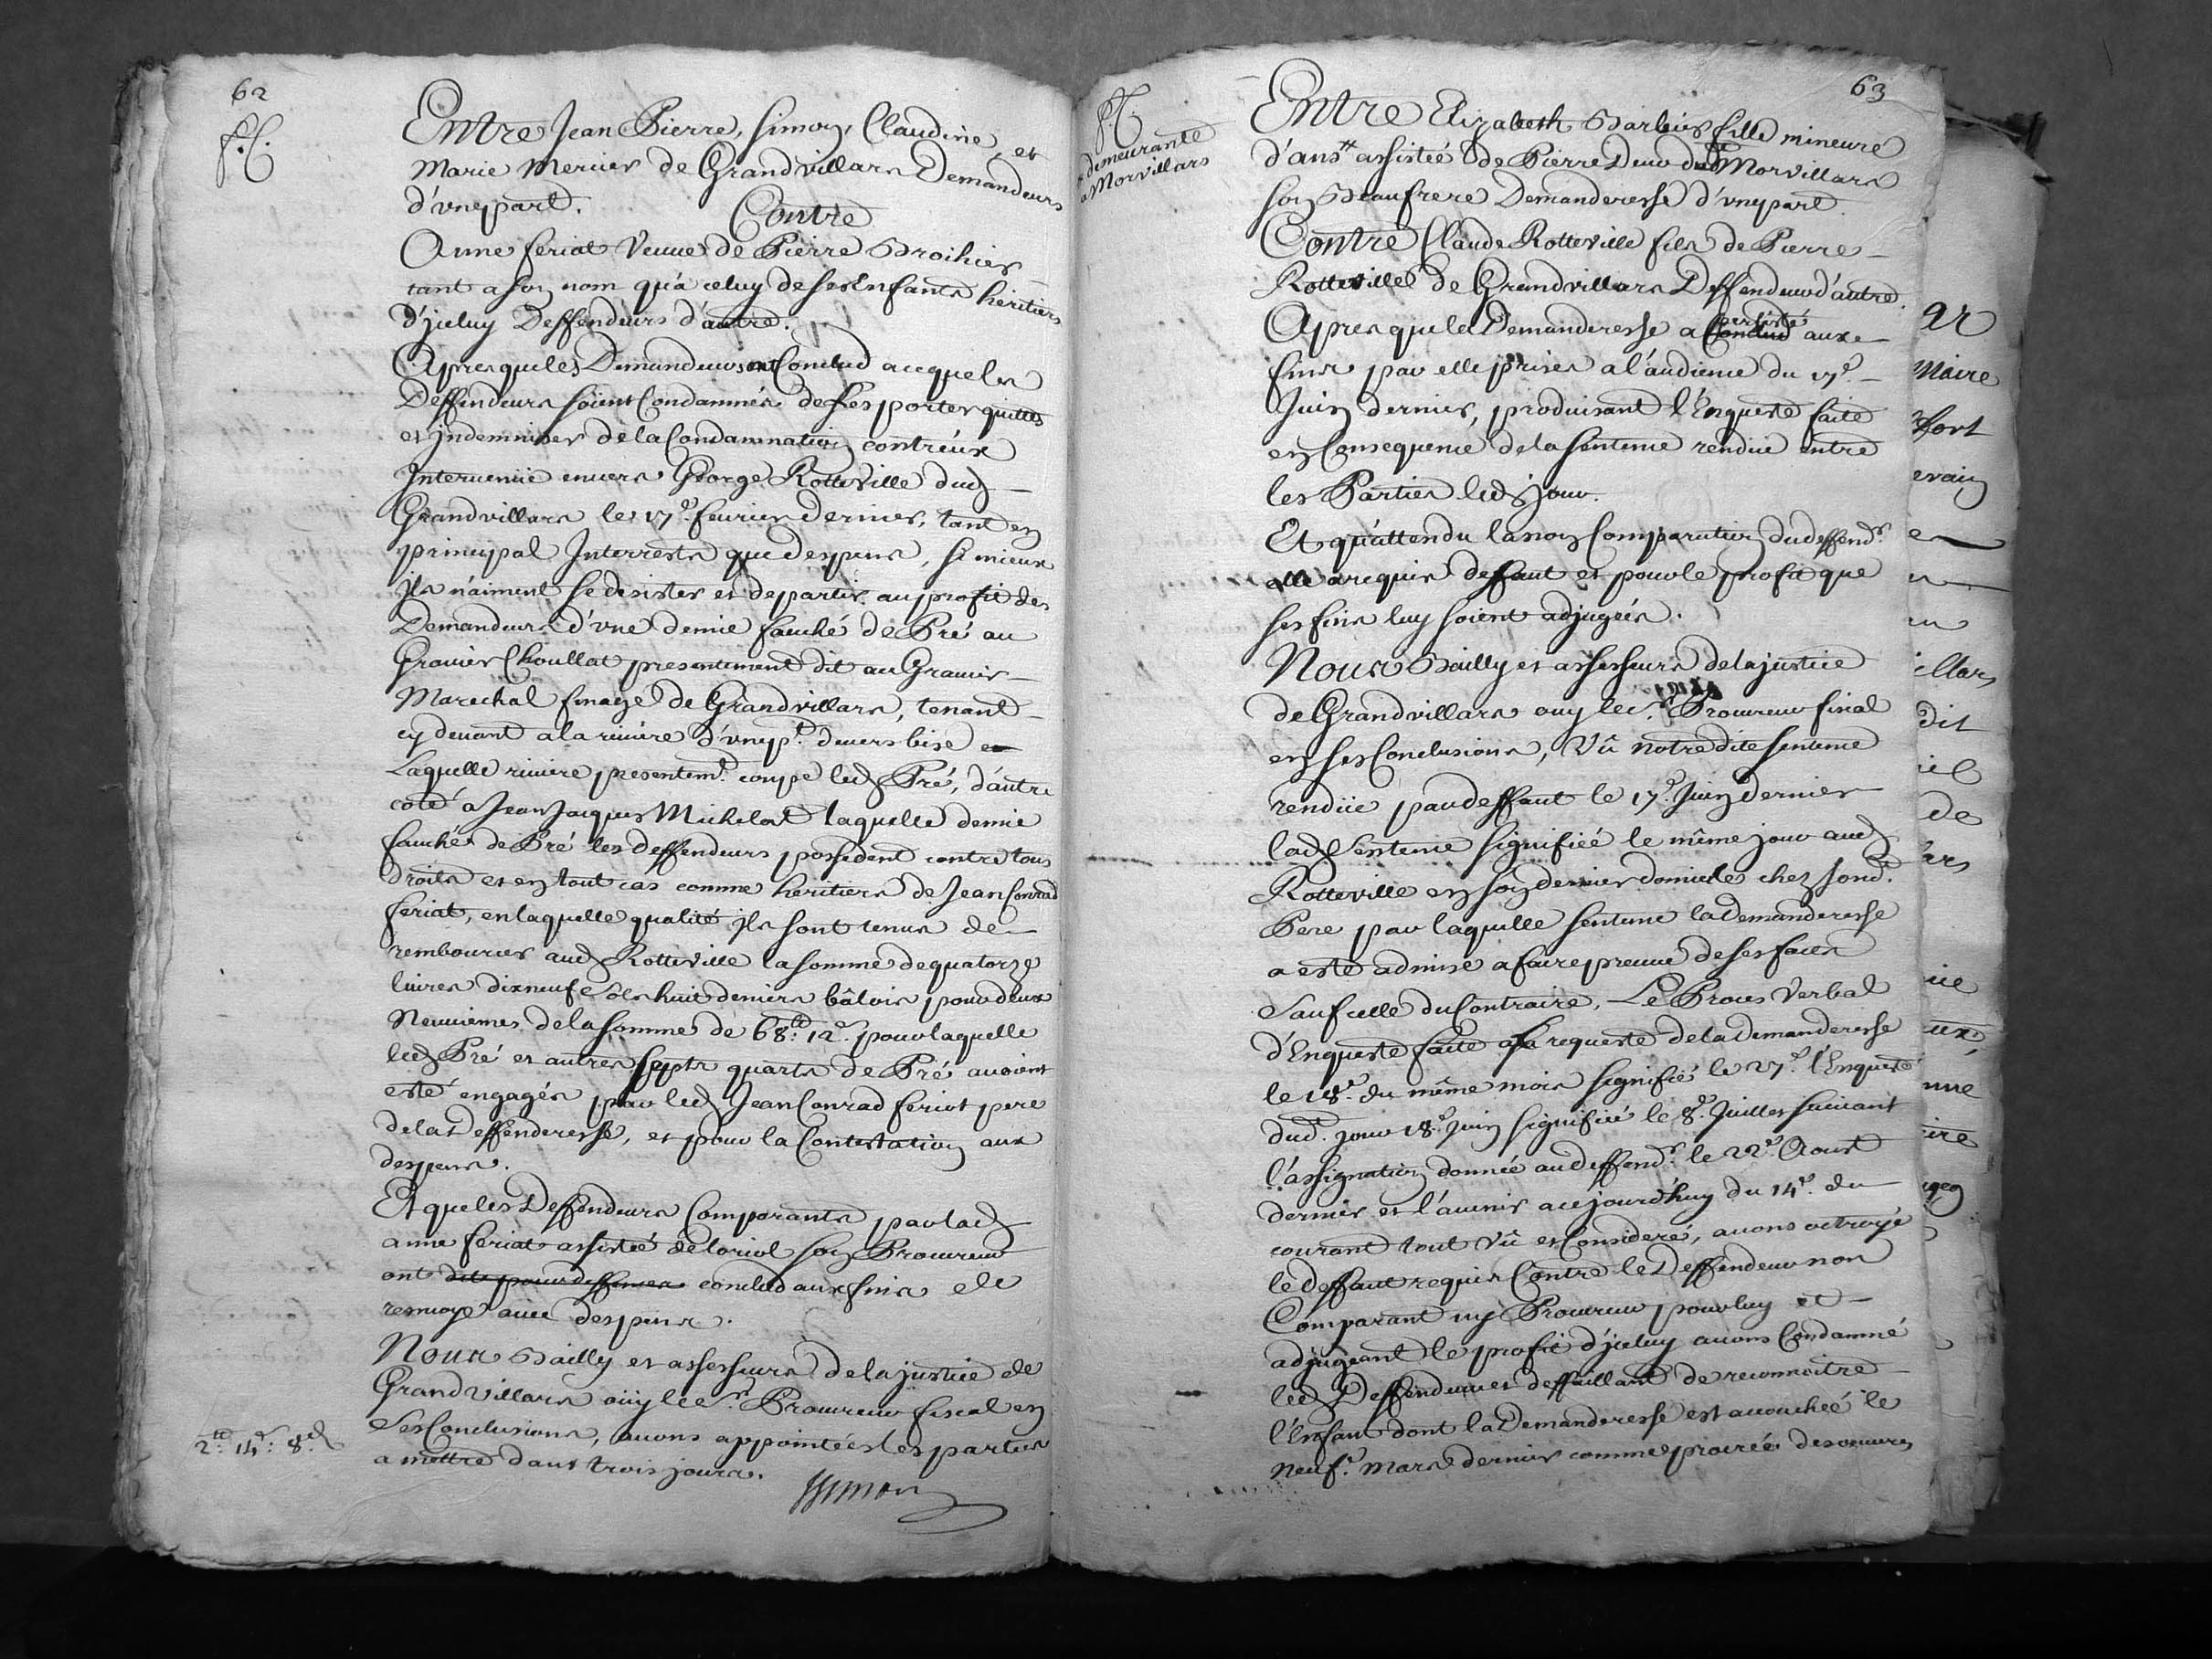 62
Entre Jean Pierre, Simon, Claudine, et
Marie Mercier de Grandvillars Demandeurs
d'vne part. Contre
Anne feriat Veuue de Pierre Broihier
tant a son nom qu'à celuy de ses Enfants heritiers
d'jceluy Deffendeurs d'autre.
Apres que les Demandeurs ont Conclud a ce que les
Deffendeurs soient Condamnés de les porter quittes
et jndemniser de la Condamnation contr'eux
Interuenüe enuers George Rotteville dud
Grandvillars le 17e feurier dernier, tant en
principal Interrests que despens, si mieux
ils n'aiment se desister et departir au profit des
Demandeurs d'vne demie fauché de Pré au
Grauier Choullat presentement dit au Grauier
Marechal finage de Grandvillars, tenant
cy deuant a la riuiere d'vne pt. deuers bise
Laquelle riuiere presentemt. coupe led Pré, d'autre
coté a Jean Jacques Michelat laquelle demie
fauché de Pré les deffendeurs possedent contre tous
droits et en tout cas comme heritiers de Jean Conrad
feriat, en laquelle qualité jls sont tenus de
rembourcer aud Rotteville la somme de quatorze
liures dixneuf sols huit deniers bâlois pour deux
Neuuiemes de la somme de 68tt. 12s. pour laquelle
led Pré et autres septs quarts de Pré auoient
esté engagés par led Jean Conrad feriot pere
de la Deffenderesse, et pour la Contestation aux
despens.
Et que les Deffendeurs Comparants par lad
anne feriat assisteé de loriol son Procureur
ont dit pour deffenses conclud aux fins de
renuoye auec despens.
Nous Bailly et assesseurs de la justice de
Grandvillars oüy le Sr. Procureur fiscal en
Ses Conclusions, auons appointées les parties
a mettre dans trois jours.
2tt. 14s. 8d
63
demeurante
a Morvillars
Entre Elizabeth Barbier fille mineure
d'ans assisteé de Pierre Deuo dud Morvillars
son Beaufrere Demanderesse d'vne part.
Contre Claude Rotteville fils de Pierre
Rotteville de Grandvillars Deffendeur d'autre.
Apres que la Demanderesse a Conclud persisté aux
fins par elle prises a l'audience du 17e.
Juin dernier, produisant l'Enqueste faite
en Consequence de la sentence rendüe entre
les Parties led jour.
Et qu'attendu la non Comparution du deffendr.
elle a requis deffaut et pour le profit que
ses fins luy soient adjugeés.
Nous Bailly et assesseurs de la justice
de Grandvillars ouy le Sr. Procureur fiscal
en ses Conclusions, Vû notre dite sentence
rendüe par deffaut le 17e. Juin dernier
lad Sentence signifieé le même jour aud
Rotteville en son dernier domicile chez sond.
Pere par laquelle sentence la demanderesse
a esté admise a faire preuue de ses faits
Sauf celle du Contraire, Le Proces Verbal
d'Enqueste faite a la requeste de la Demanderesse
le 18e. du même mois signifié le 27e. l'Enqueste
dud. jour 18e. Juin signifiée le 8e. Juillet suiuant
l'assignation donneé au deffendr. le 22e. Aoust
dernier et l'auenir a cejourd'huy du 14e. du
courant tout Vû et Consideré, auons octroyé
le deffaut requis Contre le Deffendeur non
Comparant ny Procureur pour luy et
adjugeant le profit d'jceluy auons Condamné
led Deffendeur et deffaillant de reconnoitre
l'Enfant dont la Demanderesse est accoucheé le
neufe. mars dernier comme procreé des oeuures